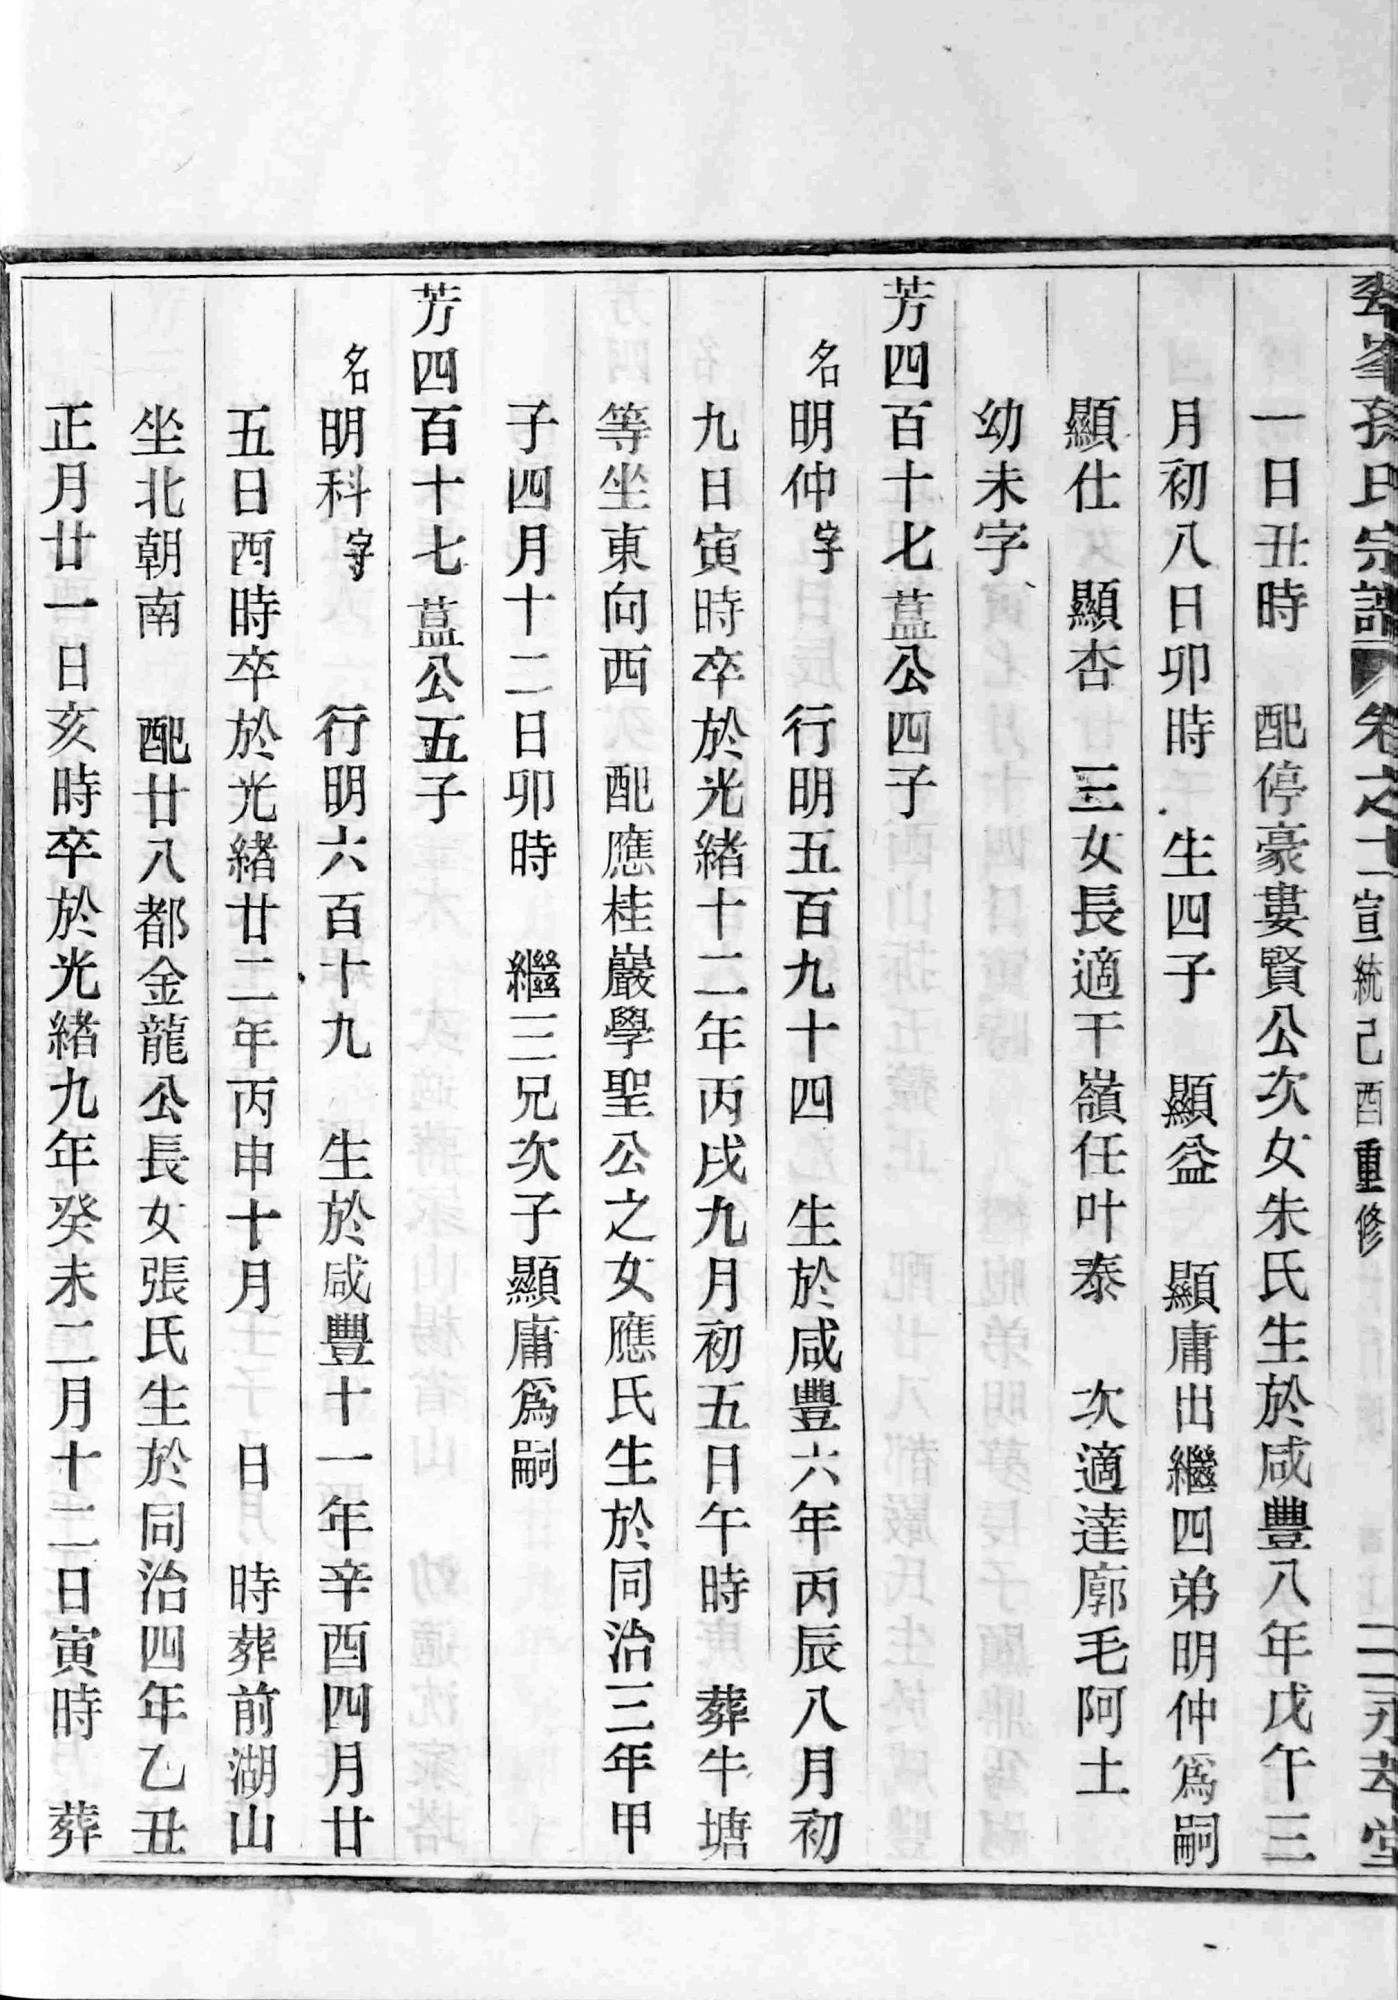 孫氏宗譜 卷之十一 宣統己酉重修
一日丑時 配停豪婁賢公次女朱氏生於咸豐八年戊午三
月初八日卯時 生四子 顯益 顯庸出繼四弟明仲爲嗣
顯仕 顯杏 三女長適干嶺任叶泰 次適達廓毛阿土
幼未字
芳四百十七䓝公四子
名明仲字 行明五百九十四 生於咸豐六年丙辰八月初
九日寅時卒於光緒十二年丙戌九月初五日午時 葬牛塘
等坐東向西 配應桂巖學聖公之女應氏生於同治三年甲
子四月十二日卯時 繼三兄次子顯庸爲嗣
芳四百十七䓝公五子
名明科字 行明六百十九 生於咸豐十一年辛酉四月廿
五日酉時卒於光緒廿二年丙申十月 日 時葬前湖山
坐北朝南 配廿八都金龍公長女張氏生於同治四年乙丑
正月廿一日亥時卒於光緒九年癸未二月十二日寅時 葬